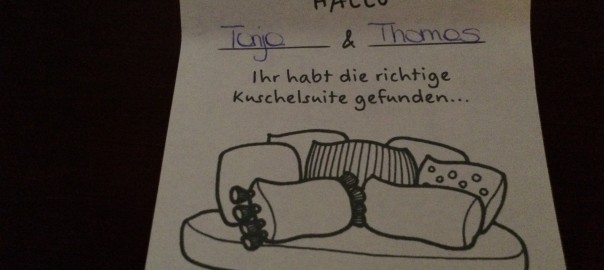 HALLO
Tanja & Thomas
Ihr habt die richtige
Kuschelsuite gefunden...